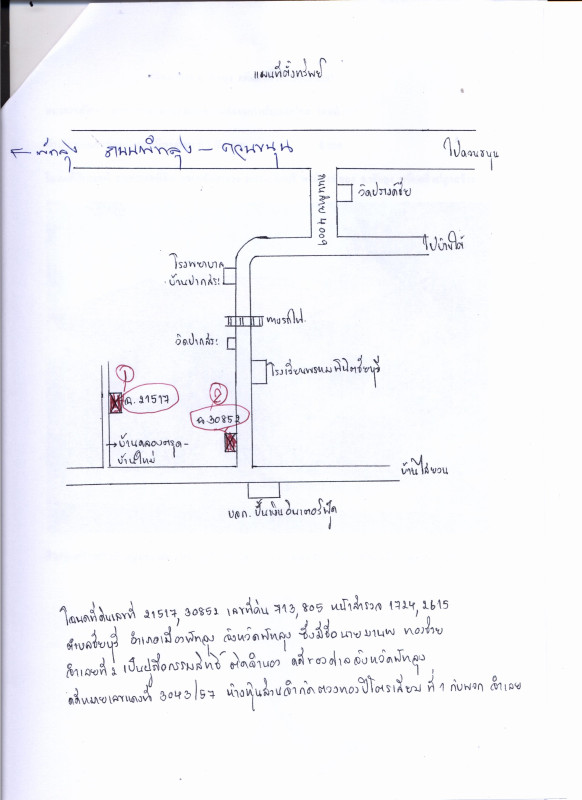 แผนที่ตั้งทรัพย์
← พัทลุง ถนนพัทลุง - ควนขนุน
ไปควนขนุน
วัดปรางค์ชัย
ถนนสาย 4009
ไปบ้านใต้
โรงพยาบาล
บ้านปากสระ
ทางรถไฟ
วัดปากสระ
โรงเรียนพรหมพินิตชัยบุรี
1
ฉ. 21517
2
ฉ. 30852
→ บ้านคลองตรุด -
บ้านใหม่
บ้านไสยวน
บจก. ปิ่นเงินอินเตอร์ฟู๊ด
โฉนดที่ดินเลขที่ 21517, 30852 เลขที่ดิน 713, 805 หน้าสำรวจ 1724, 2615
ตำบลชัยบุรี อำเภอเมืองพัทลุง จังหวัดพัทลุง ซึ่งมีชื่อนายมานพ ทองช่วย
จำเลยที่ 2 เป็นผู้ถือกรรมสิทธิ์ คดีของศาลจังหวัดพัทลุง
คดีหมายเลขแดงที่ 3043/57 ห้างหุ้นส่วนจำกัดตวงทองปิโตรเลียม ที่ 1 กับพวก จำเลย